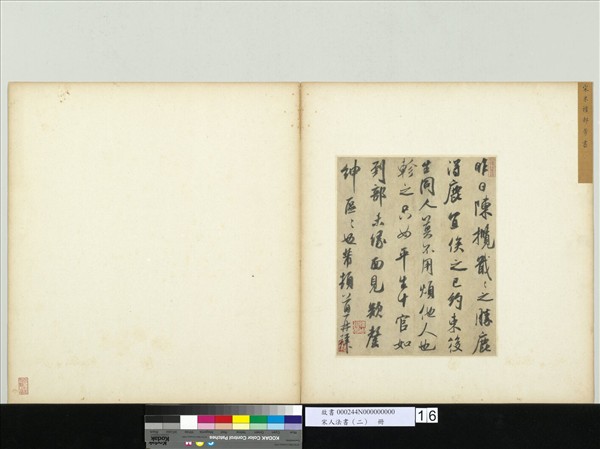 昨日陳攬戢戢之勝鹿
得鹿宜俟之已約束後
生同人莫不用煩他人也
軫之只如平生十官如
到部未緣面見欵罄
紳區區芾頓首再拜
故書 000244N000000000
宋人法書(二) 冊
16
KODAK Color Control Patches
Kodak